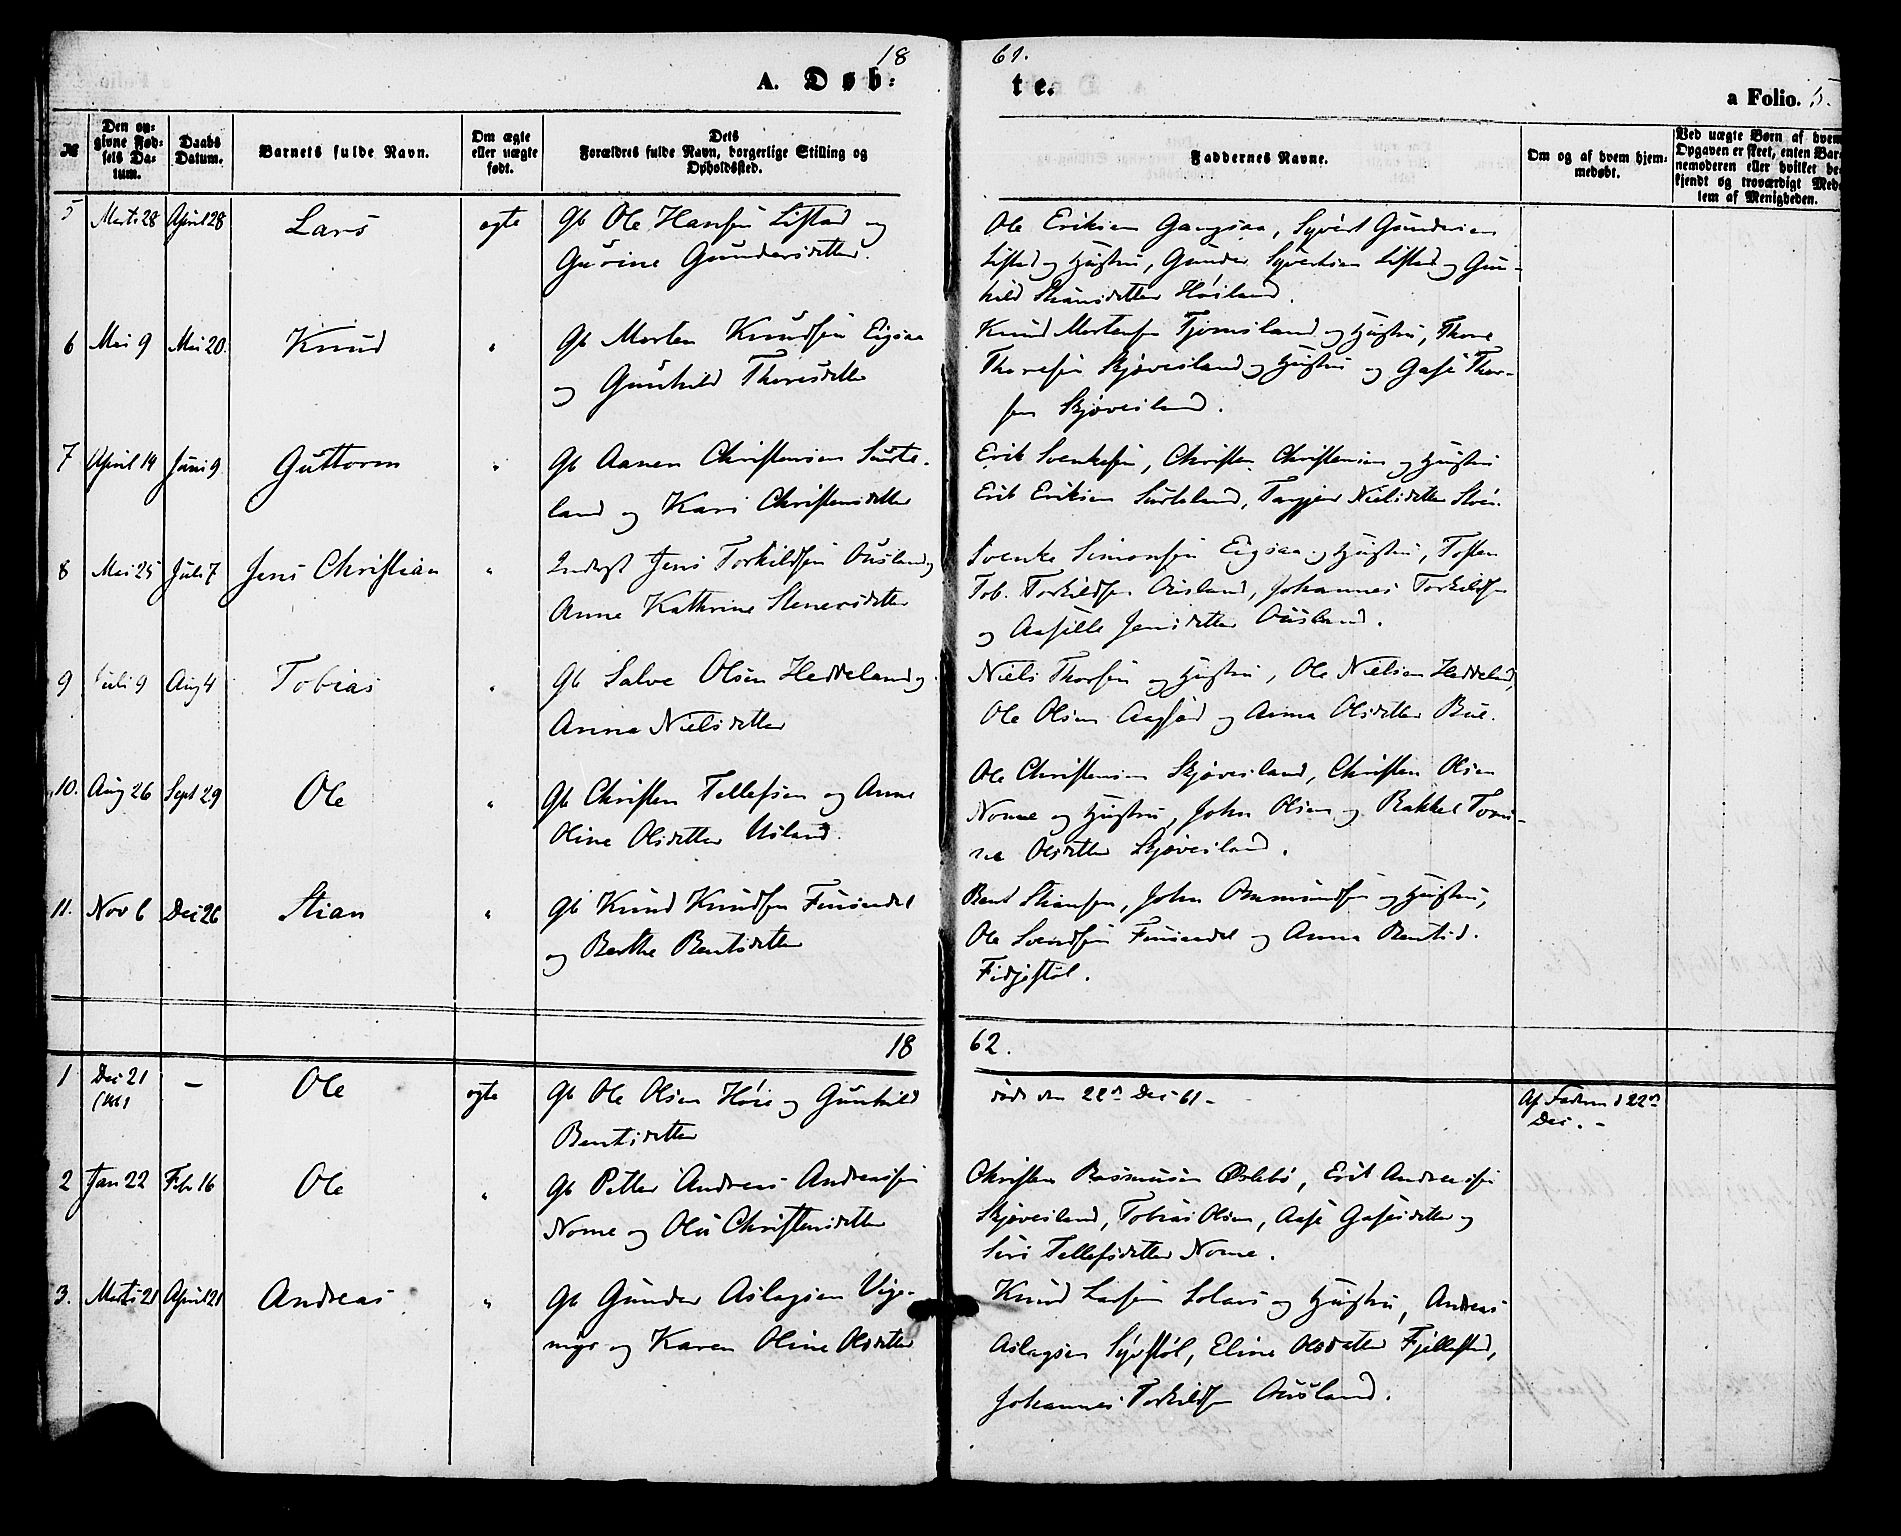 1861.
A. Døbte.
a Folio. 5.
№
Den opgivne Fødsels Datum.
Daabs Datum.
Barnets fulde Navn.
Om ægte eller uægte født.
Dets Forældres fulde Navn, borgerlige Stilling og Opholdssted.
Faddernes Navne.
Om og af hvem hjemmedøbt.
Ved uægte Børn af hvem Opgaven er skeet, enten Barnemoderen eller hvilket bekjendt og troværdigt Medlem af Menigheden.
5 Marts 28 April 28 Lars ægte Gb Ole Hansen Listad og
Gurine Gundersdatter.
Ole Eriksen Gangsaa, Syvert Gundersen
Listad og Hustru, Gunder Syvertsen Listad og Gun-
hild Stiansdatter Høiland.
6 Mai 9 Mai 20. Knud " Gb Morten Knudsen Eigsaa
og Gunhild Thoresdatter
Knud Mortensen Tjomsland og Hustru, Thore
Thoresen Skjævesland og Hustru og Gase Thor-
sen Skjævesland.
7 April 14 Juni 9 Guttorm " Gb Aanen Christensen Surte-
land og Kari Christensdatter
Erik Svenkesen, Christen Christensen og Hustru
Erik Eriksen Surteland, Targjer Nielsdatter
8 Mai 25 Juli 7 Jens Christian " Inderst Jens Torkildsen Ausland og
Anne Kathrine Stenersdatter
Svenke Simonsen Eigsaa og Hustru, Tosten
Tob. Torkildsen Ausland, Johannes Torkildsen
og Aasille Jensdatter Ausland.
9 Juli 9 Aug 4 Tobias " Gb Salve Olsen Heddeland og
Anna Nielsdatter
Niels Thorsen og Hustru, Ole Nielsen Heddeland,
Ole Olsen og Anna Olsdatter Bue.
10. Aug 26 Sept 29 Ole " Gb Christen Tellefsen og Anne
Oline Olsdatter Usland.
Ole Christensen Skjævesland, Christen Olsen
Nome og Hustru, John Olsen og Rakkel Tomi-
ne Olsdatter Skjævesland.
11. Nov 6 Dec 26 Stian " Gb Knud Knudsen Finsådal
og Berthe Bentsdatter
Bent Stiansen, John Osmundsen og Hustru,
Ole Svendsen Finsådal og Anna Bentsd.
Fidjestøl.
1862.
1 Dec 21 (61) – Ole ægte Gb Ole Olsen Høie og Gunhild
Bentsdatter
døde den 22n Dec 61 –
Af Faderen d 22n
Dec. –
2 Jan 22 Feb 16 Ole " Gb Petter Andreas Andreassen
Nome og Olu Christensdatter
Christen Rasmusen Øslebø, Erik Andreassen
Skjævesland, Tobias Olsen, Aase Gasesdatter og
Siri Tellefsdatter Nome.
3. Marts 21 April 21 Andreas " Gb Gunder Aslagsen Vige-
myr og Karen Oline Olsdatter
Knud Larsen Solaas og Hustru, Andreas
Aslagsen Syrstøl, Eline Olsdatter Fjellestad,
Johannes Torkildsen Ausland.